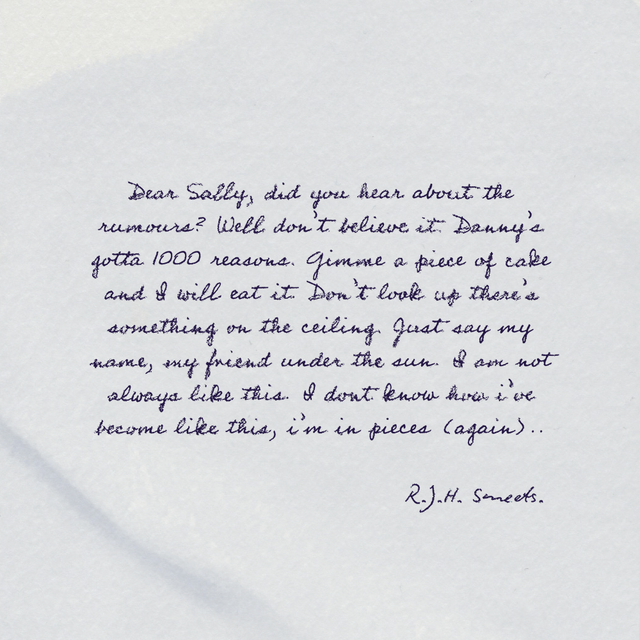 Dear Sally, did you hear about the
rumours? Well don't believe it. Danny's
gotta 1000 reasons. Gimme a piece of cake
and I will eat it. Don't look up there's
something on the ceiling. Just say my
name, my friend under the sun. I am not
always like this. I dont know how i've
become like this, i'm in pieces (again)..
R.J.H. Smeets.